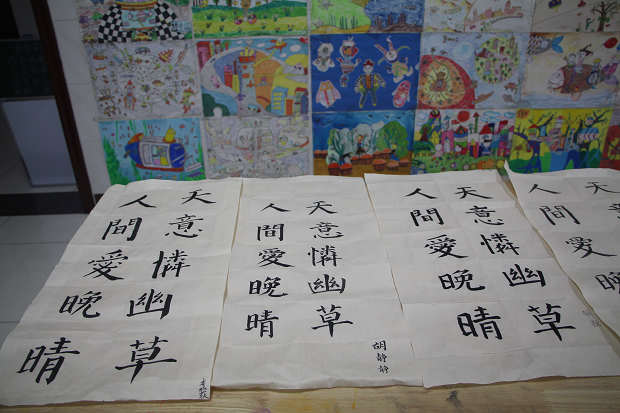 天意憐幽草
人間愛晚晴
天意憐幽草
人間愛晚晴
胡静静
天意憐幽草
人間愛晚晴
天意
人間愛晚